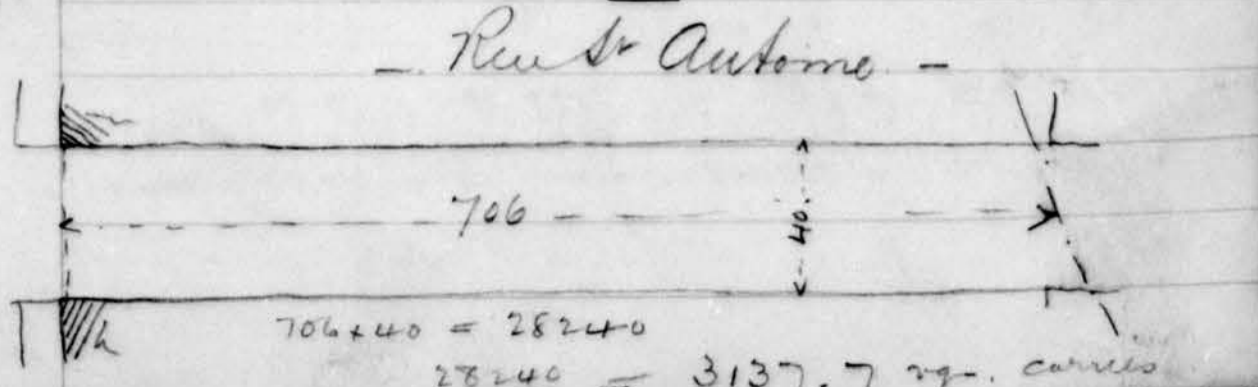 - Rue St Antoine -
706
40
706 x 40 = 28240
28240 = 3137.7 vg. carrées